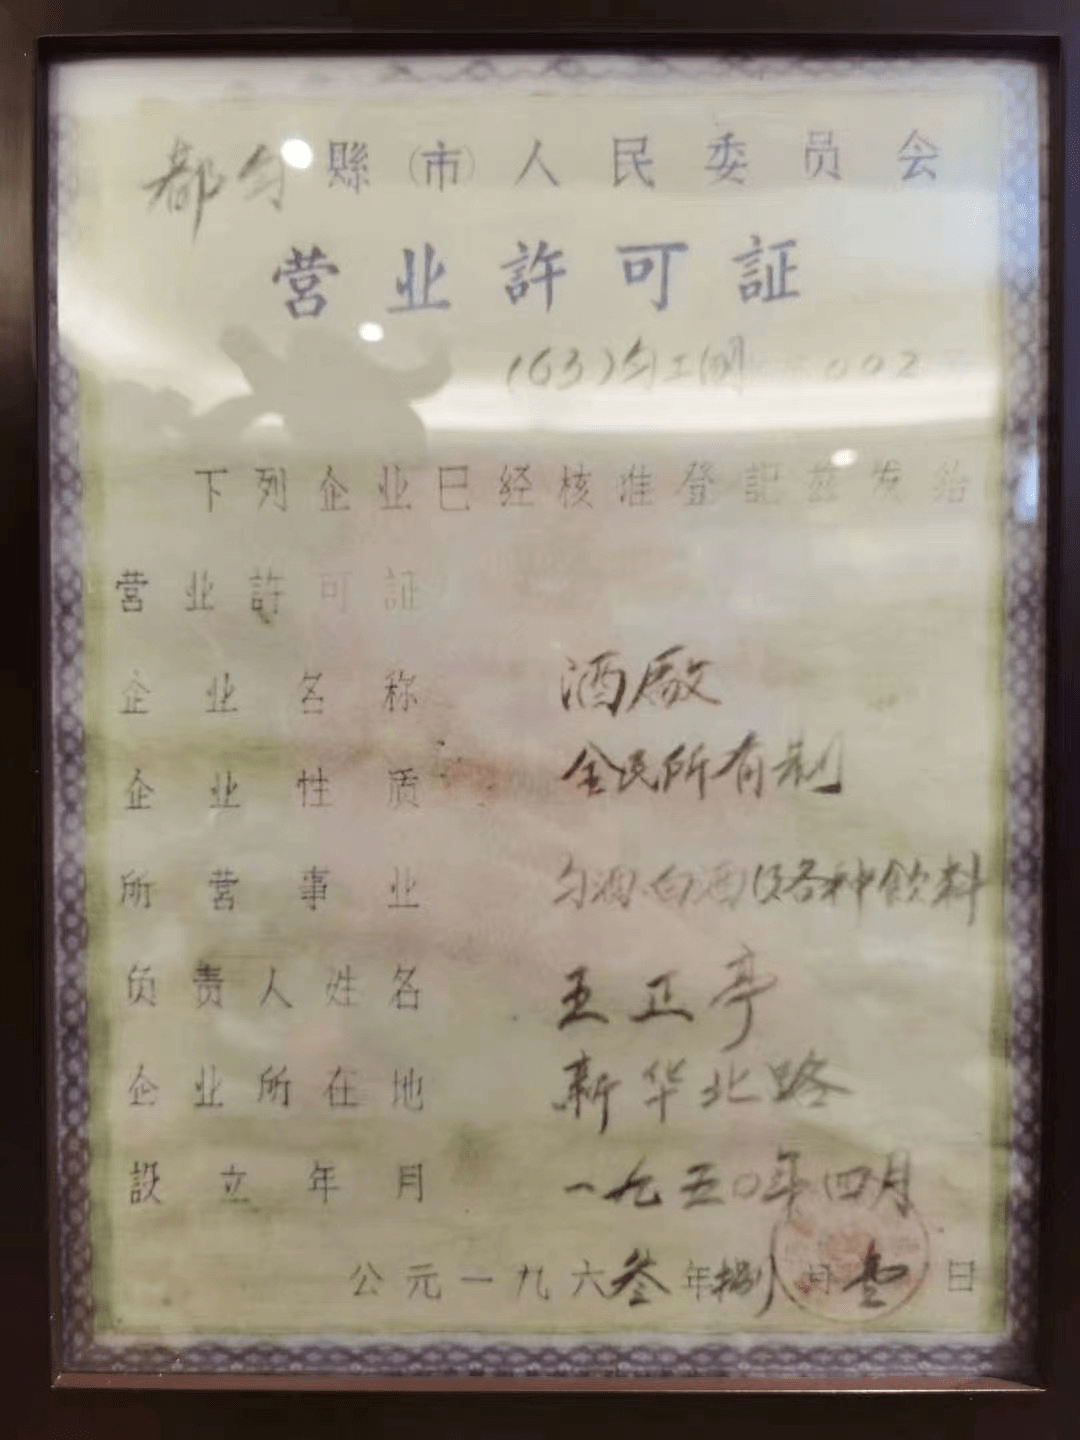 都匀縣(市)人民委员会
营业許可証
(63)匀工 002
下列企业已经核准登記兹发给
营业許可証
企业名称 酒廠
企业性质 全民所有制
所营事业 匀酒白酒及各种飲料
负责人姓名 王正亭
企业所在地 新华北路
設立年月 一九五〇年四月
公元一九六叁年捌月 日